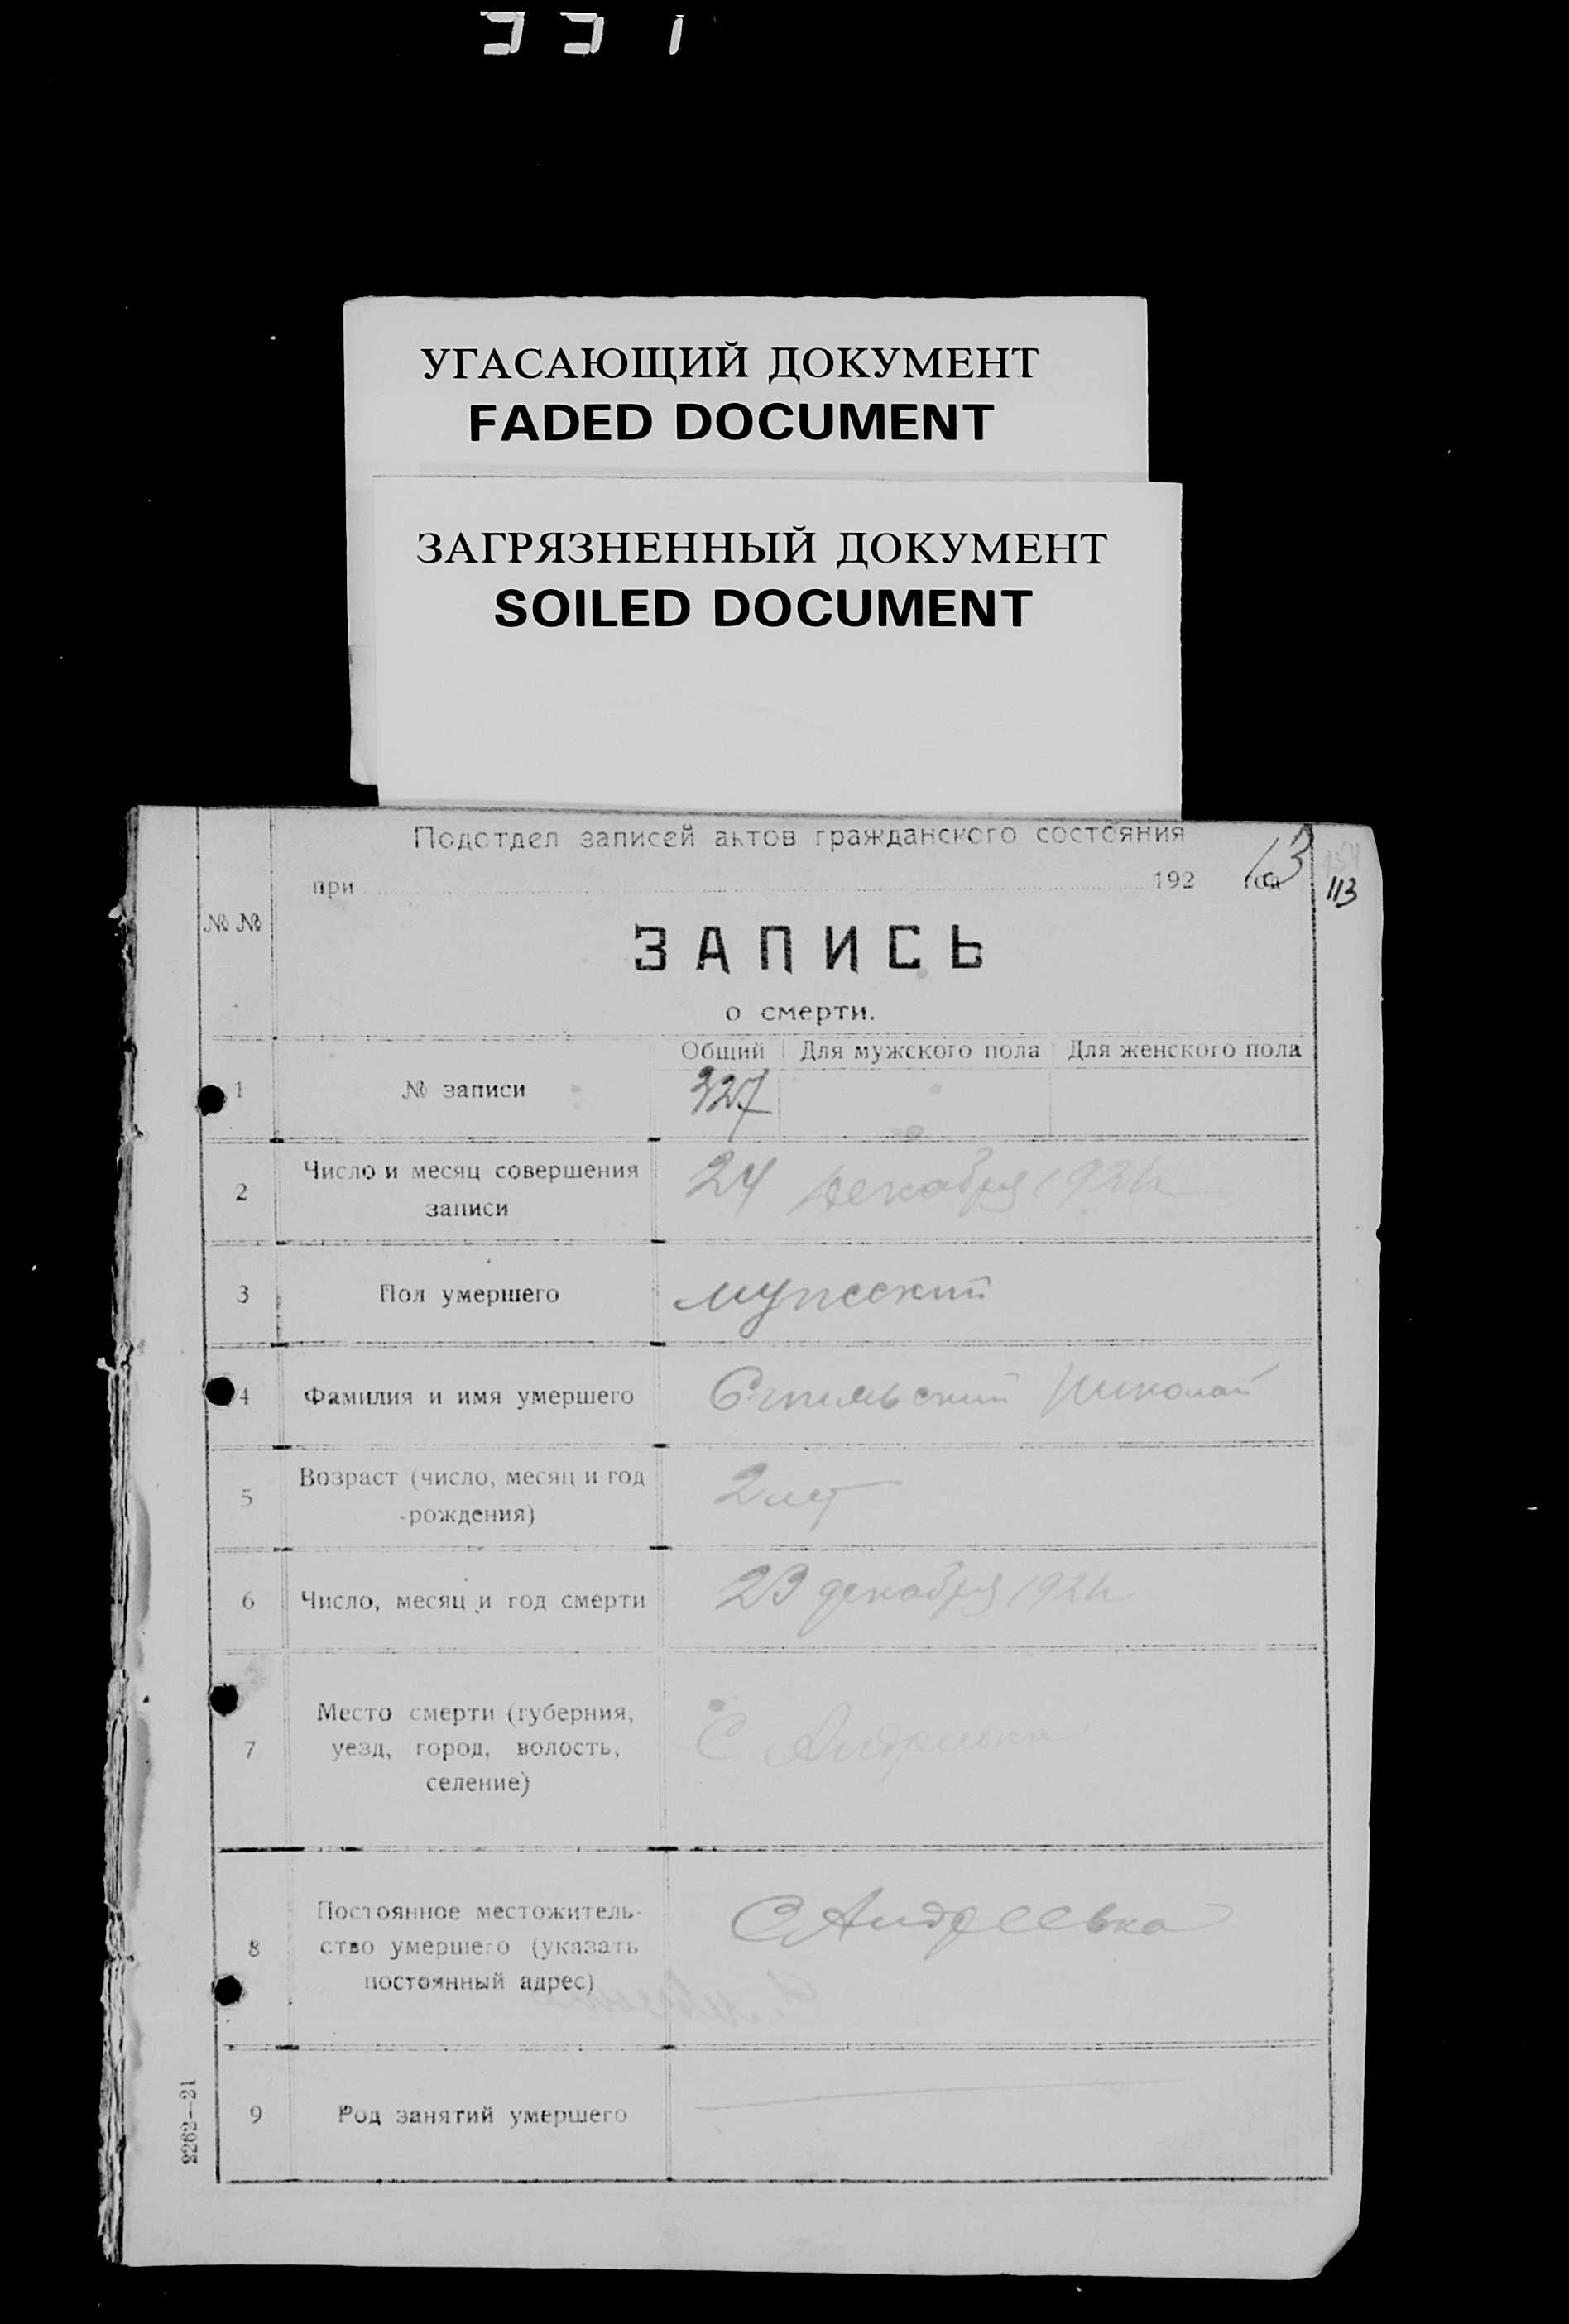 УГАСАЮЩИЙ ДОКУМЕНТ
FADED DOCUMENT
ЗАГРЯЗНЕННЫЙ ДОКУМЕНТ
SOILED DOCUMENT
Подотдел записей актов гражданского состояния
при 192 года
113
№ №
ЗАПИСЬ
о смерти.
Общий Для мужского пола Для женского пола
1 № записи 327
2 Число и месяц совершения записи 24 декабря 192
3 Пол умершего мужеский
4 Фамилия и имя умершего Николай
5 Возраст (число, месяц и год рождения) 2 лет
6 Число, месяц и год смерти 23 декабря 192
7 Место смерти (губерния, уезд, город, волость, селение) С Андреевка
8 Постоянное местожительство умершего (указать постоянный адрес) С Андреевка
9 Род занятий умершего
2262—21